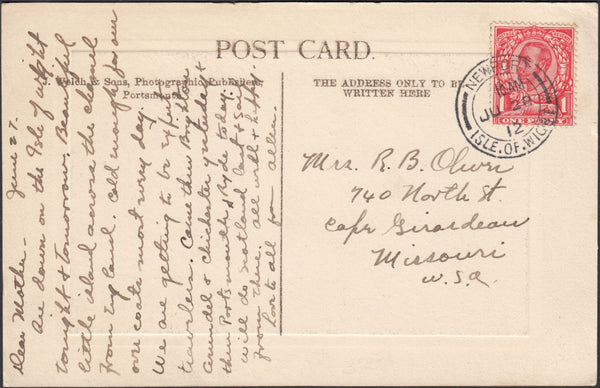 POST CARD.
J. Welch & Sons, Photographic Publishers,
Portsmouth.
THE ADDRESS ONLY TO BE
WRITTEN HERE
NEWPORT
JU 28
12
ISLE.OF.WIGHT
ONE PENNY
1
1
Mrs. R. B. Oliver
740 North St.
Cape Girardeau
Missouri
U.S.A.
June 27.
Dear Mother –
Are down on the Isle of Wight
tonight & tomorrow. Beautiful
little island across the channel
from England. Cold enough for our
over coats most every day.
We are getting to be expert
travelers. Came thru Brighton
Arundel & Chichester yesterday &
thru Portsmouth & Ryde today.
will do Scotland last & sail
from there. All well & happy.
Love to all from Allen